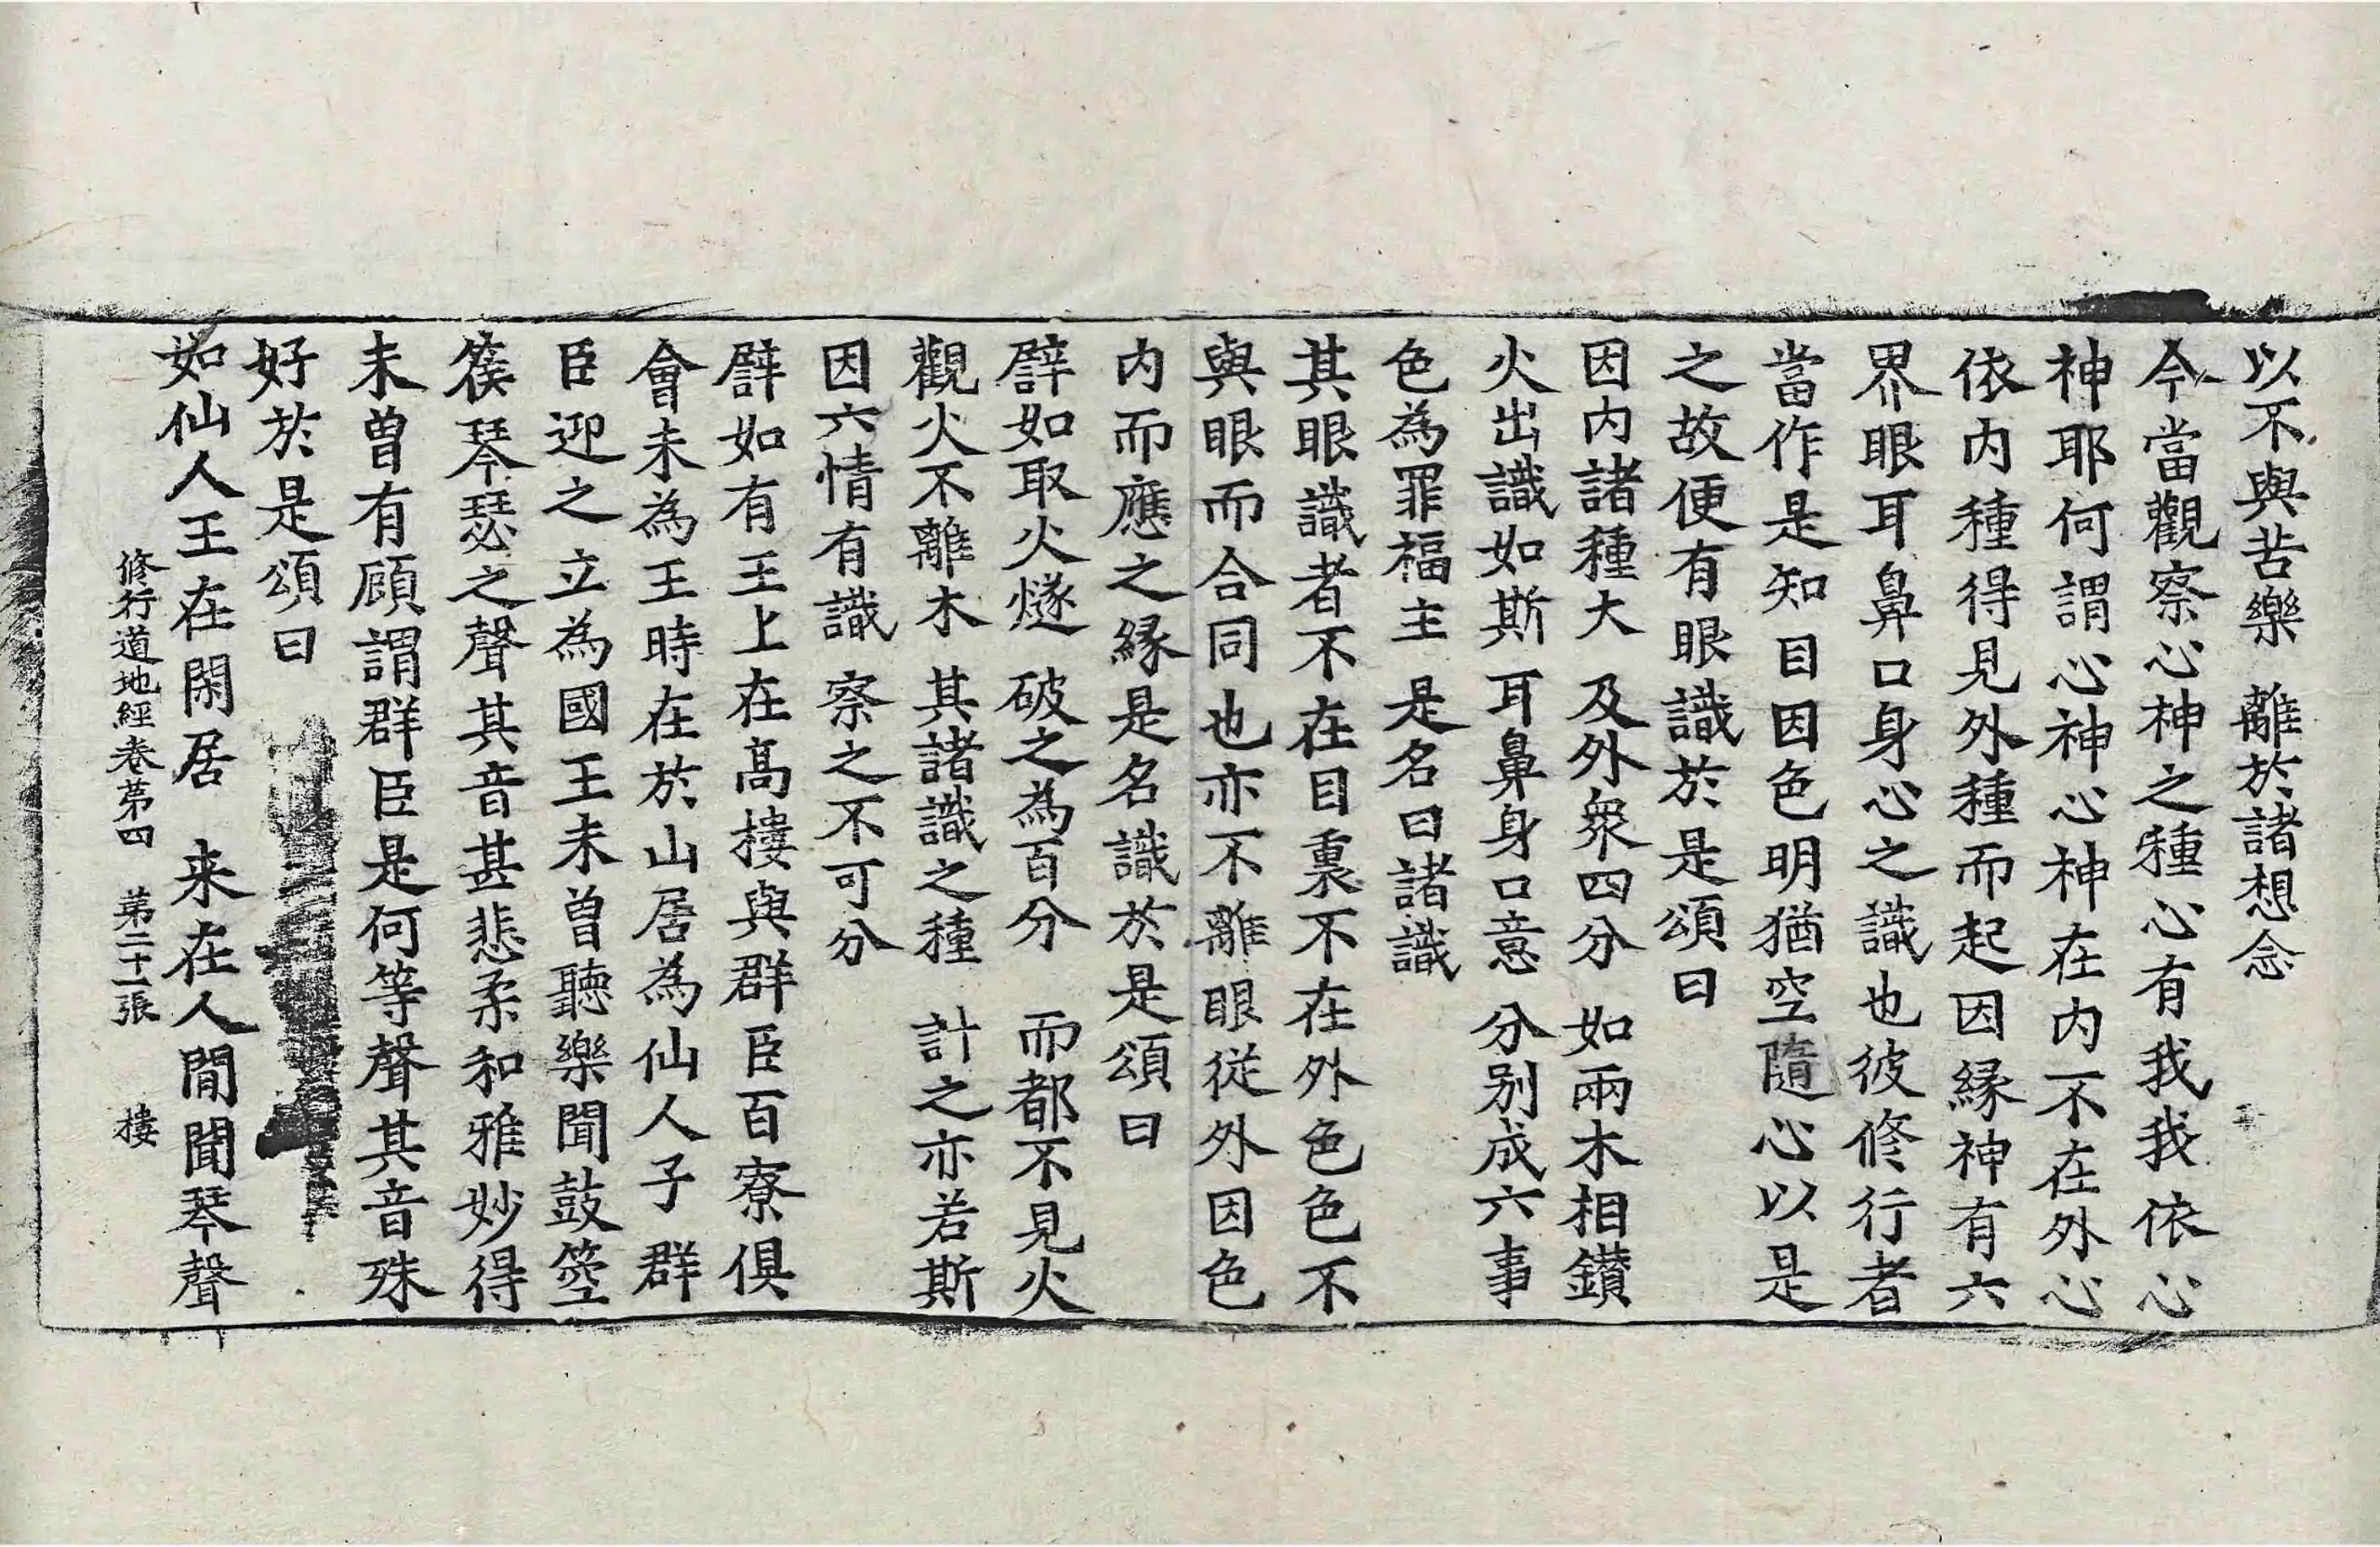 以不與苦樂　離於諸想念
今當觀察心神之種心有我我依心
神耶何謂心神心神在内不在外心
依内種得見外種而起因緣神有六
界眼耳鼻口身心之識也彼修行者
當作是知目因色明猶空隨心以是
之故便有眼識於是頌曰
因内諸種大　及外衆四分　如兩木相鑚
火出識如斯　耳鼻身口意　分别成六事
色為罪福主　是名曰諸識
其眼識者不在目裏不在外色色不
與眼而合同也亦不離眼從外因色
内而應之緣是名識於是頌曰
譬如取火燧　破之為百分　而都不見火
觀火不離木　其諸識之種　計之亦若斯
因六情有識　察之不可分
譬如有王上在高樓與群臣百寮俱
會未為王時在於山居為仙人子群
臣迎之立為國王未曾聽樂聞鼓箜
篌琴瑟之聲其音甚悲柔和雅妙得
未曾有顧謂群臣是何等聲其音殊
好於是頌曰
如仙人王在閑居　来在人間聞琴聲
修行道地經卷第四　第二十一張　樓